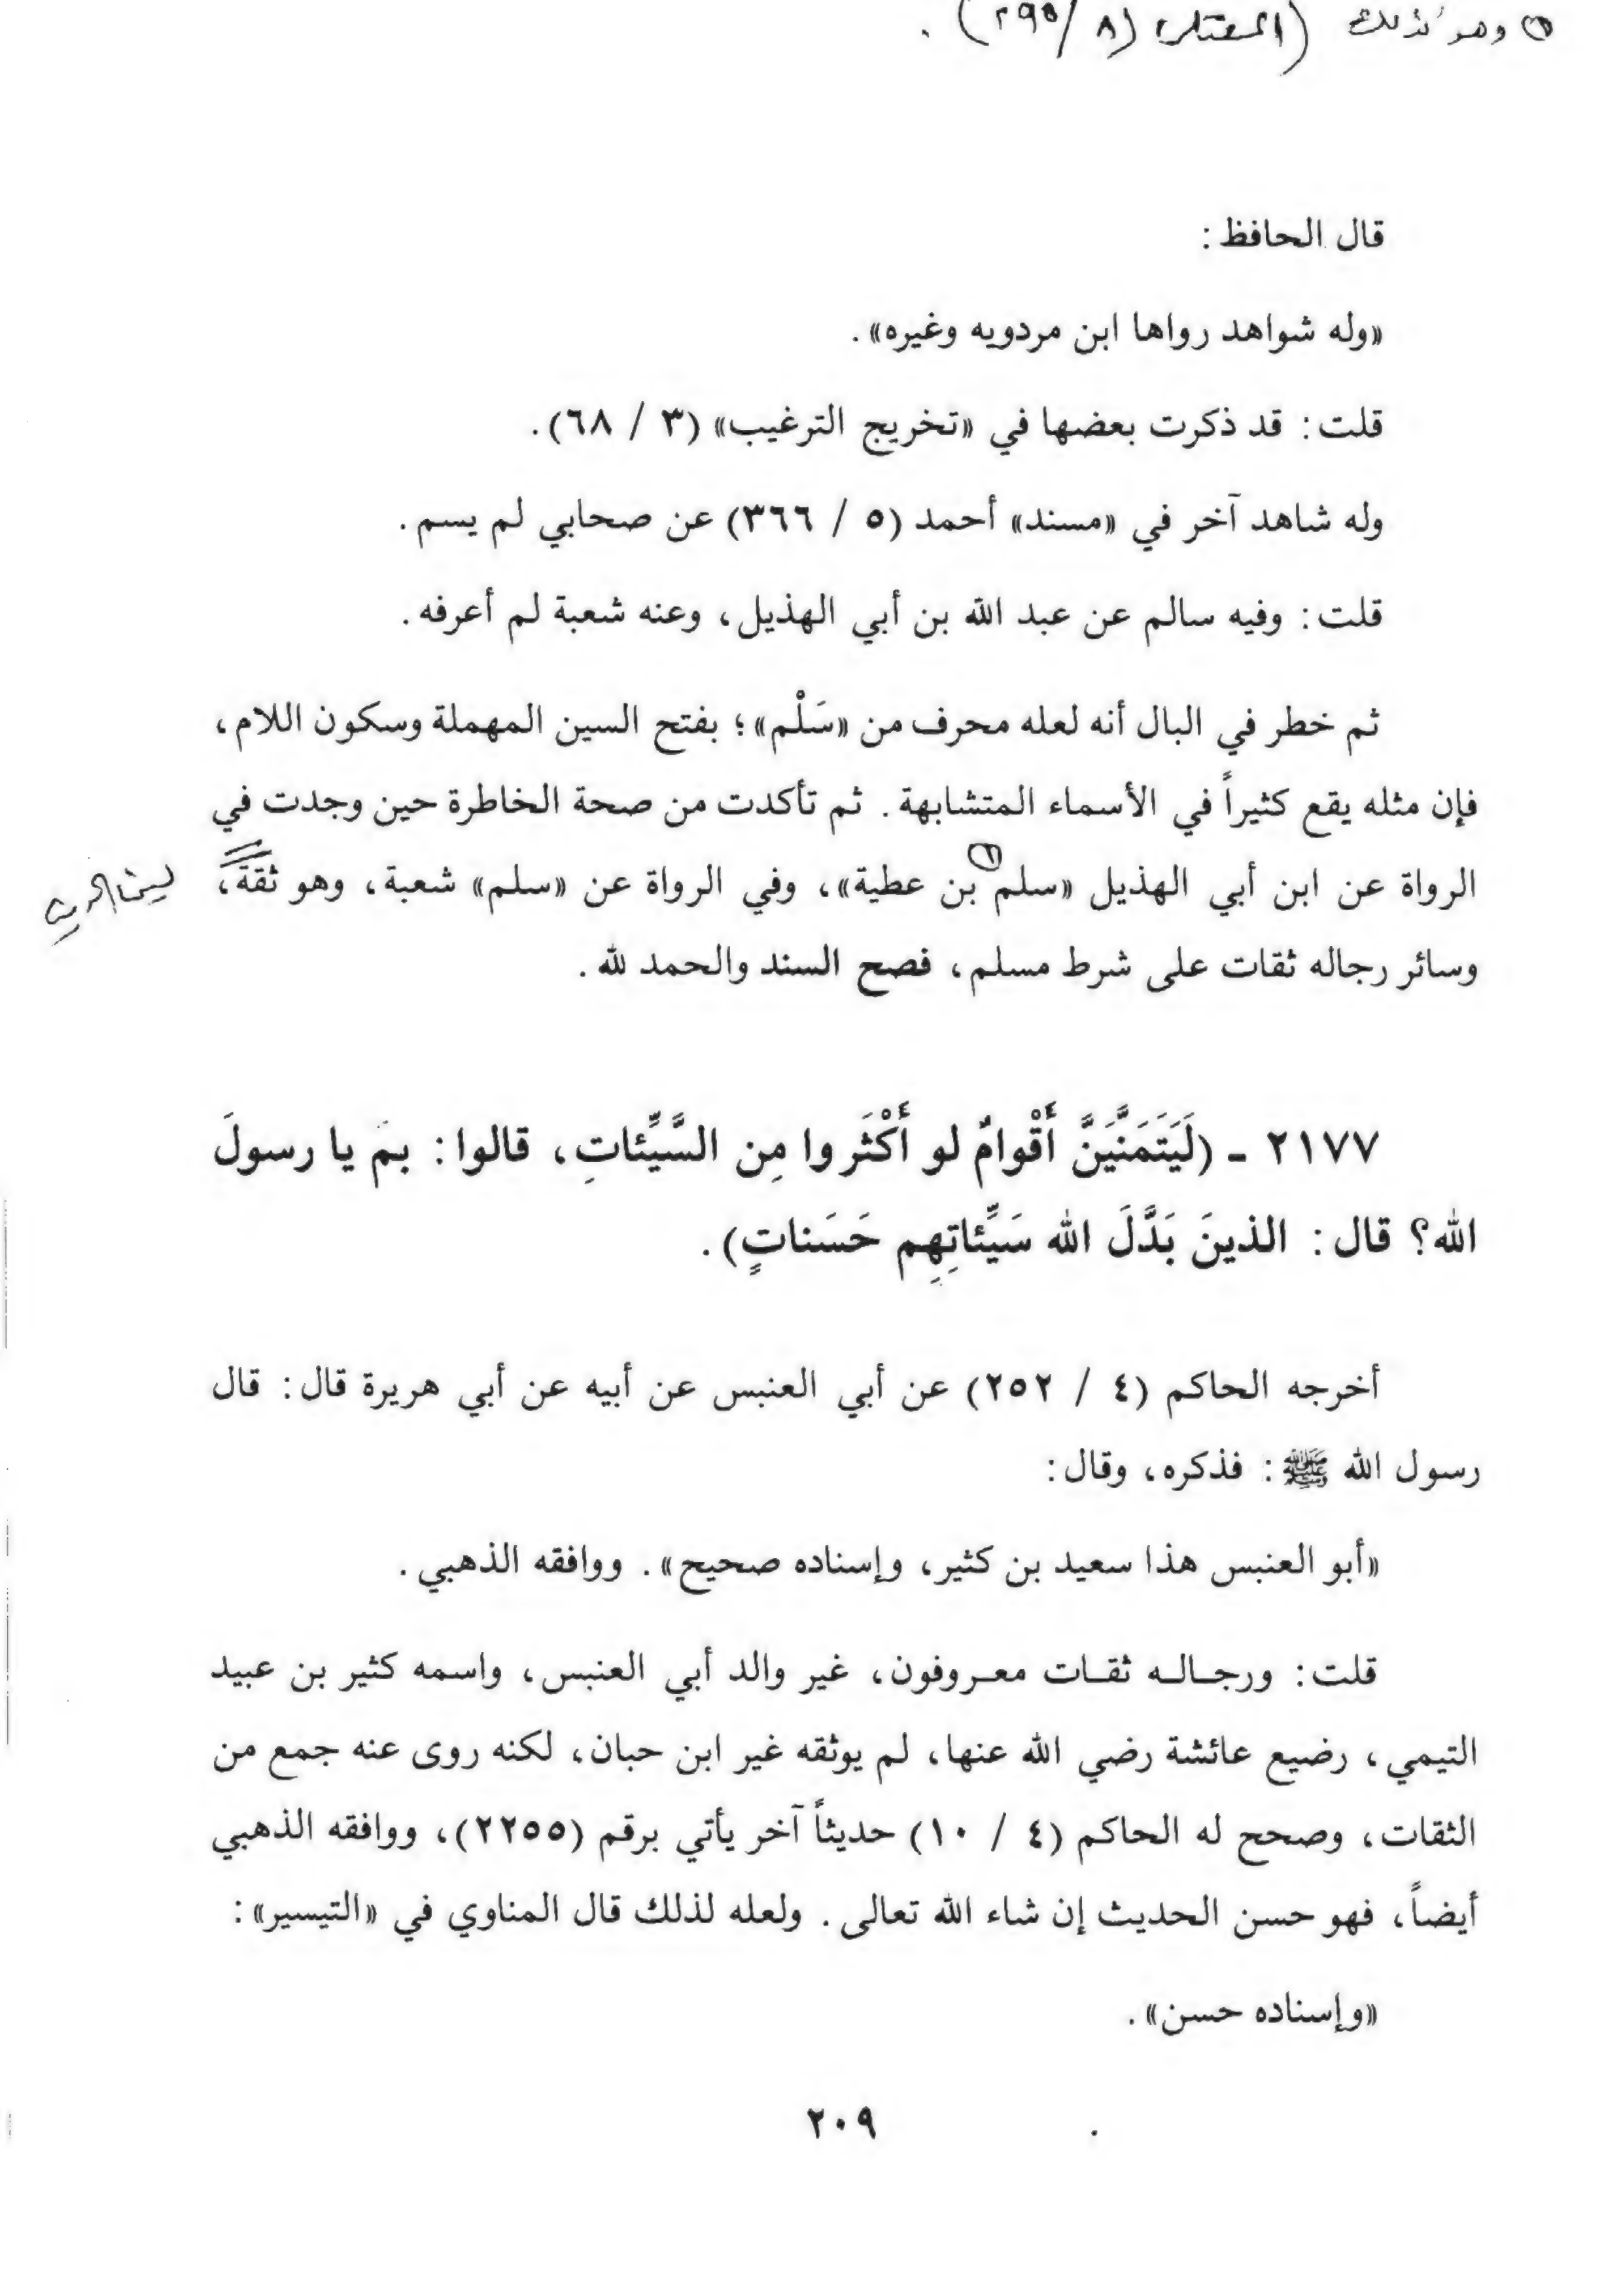 ① وهو كذلك (المعتلي (٨/ ٢٩٥) .
قال الحافظ :
«وله شواهد رواها ابن مردويه وغيره» .
قلت : قد ذكرت بعضها في «تخريج الترغيب» (٣ / ٦٨) .
وله شاهد آخر في «مسند» أحمد (٥ / ٣٦٦) عن صحابي لم يسم .
قلت : وفيه سالم عن عبد الله بن أبي الهذيل، وعنه شعبة لم أعرفه .
ثم خطر في البال أنه لعله محرف من «سَلْم»؛ بفتح السين المهملة وسكون اللام،
فإن مثله يقع كثيراً في الأسماء المتشابهة . ثم تأكدت من صحة الخاطرة حين وجدت في
الرواة عن ابن أبي الهذيل «سلم ① بن عطية»، وفي الرواة عن «سلم» شعبة، وهو ثقة،
لين الحديث
وسائر رجاله ثقات على شرط مسلم، فصح السند والحمد لله .
٢١٧٧ ـ (لَيَتَمَنَّيَنَّ أَقْوامٌ لو أَكْثَروا مِن السَّيِّئاتِ، قالوا : بمَ يا رسولَ
الله؟ قال : الذينَ بَدَّلَ الله سَيِّئاتِهِم حَسَناتٍ) .
أخرجه الحاكم (٤ / ٢٥٢) عن أبي العنبس عن أبيه عن أبي هريرة قال : قال
رسول الله ﷺ : فذكره، وقال :
«أبو العنبس هذا سعيد بن كثير، وإسناده صحيح» . ووافقه الذهبي .
قلت : ورجاله ثقات معروفون، غير والد أبي العنبس، واسمه كثير بن عبيد
التيمي، رضيع عائشة رضي الله عنها، لم يوثقه غير ابن حبان، لكنه روى عنه جمع من
الثقات، وصحح له الحاكم (٤ / ١٠) حديثاً آخر يأتي برقم (٢٢٥٥)، ووافقه الذهبي
أيضاً، فهو حسن الحديث إن شاء الله تعالى . ولعله لذلك قال المناوي في «التيسير» :
«وإسناده حسن» .
٢٠٩